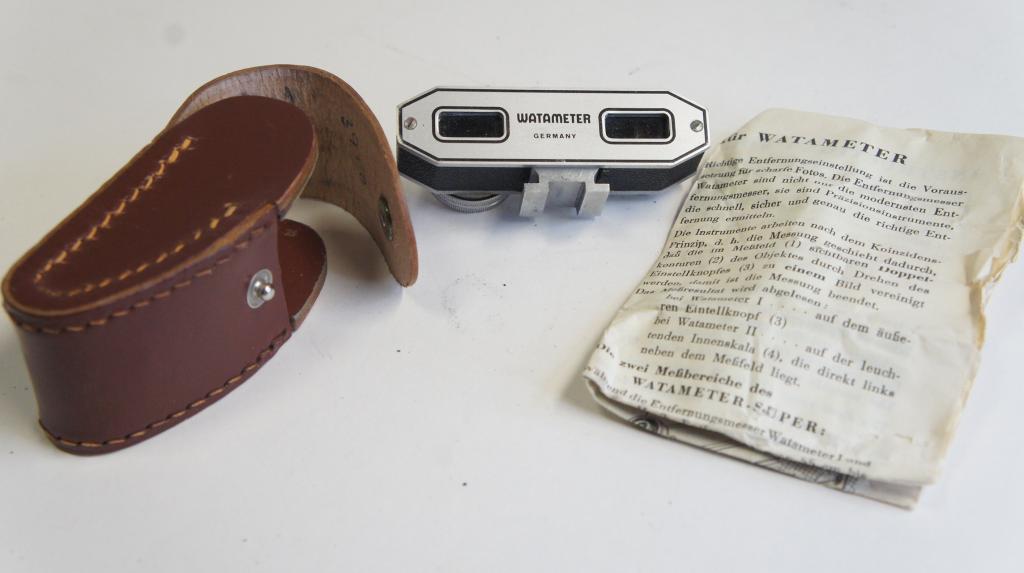 WATAMETER
GERMANY
für WATAMETER
Richtige Entfernungseinstellung ist die Voraus-
setzung für scharfe Fotos. Die Entfernungsmesser
Watameter sind nicht nur die modernsten Ent-
fernungsmesser, sie sind Präzisionsinstrumente,
die schnell, sicher und genau die richtige Ent-
fernung ermitteln.
Die Instrumente arbeiten nach dem Koinzidens-
Prinzip, d. h. die Messung geschieht dadurch,
daß die im Meßfeld (1) sichtbaren Doppel-
konturen (2) des Objektes durch Drehen des
Einstellknopfes (3) zu einem Bild vereinigt
werden, damit ist die Messung beendet.
Das Meßresultat wird abgelesen:
bei Watameter I . . . . auf dem äuße-
ren Eintellknopf (3)
bei Watameter II . . . . auf der leuch-
tenden Innenskala (4), die direkt links
neben dem Meßfeld liegt.
Die zwei Meßbereiche des
WATAMETER-SUPER:
während die Entfernungsmesser Watameter I und